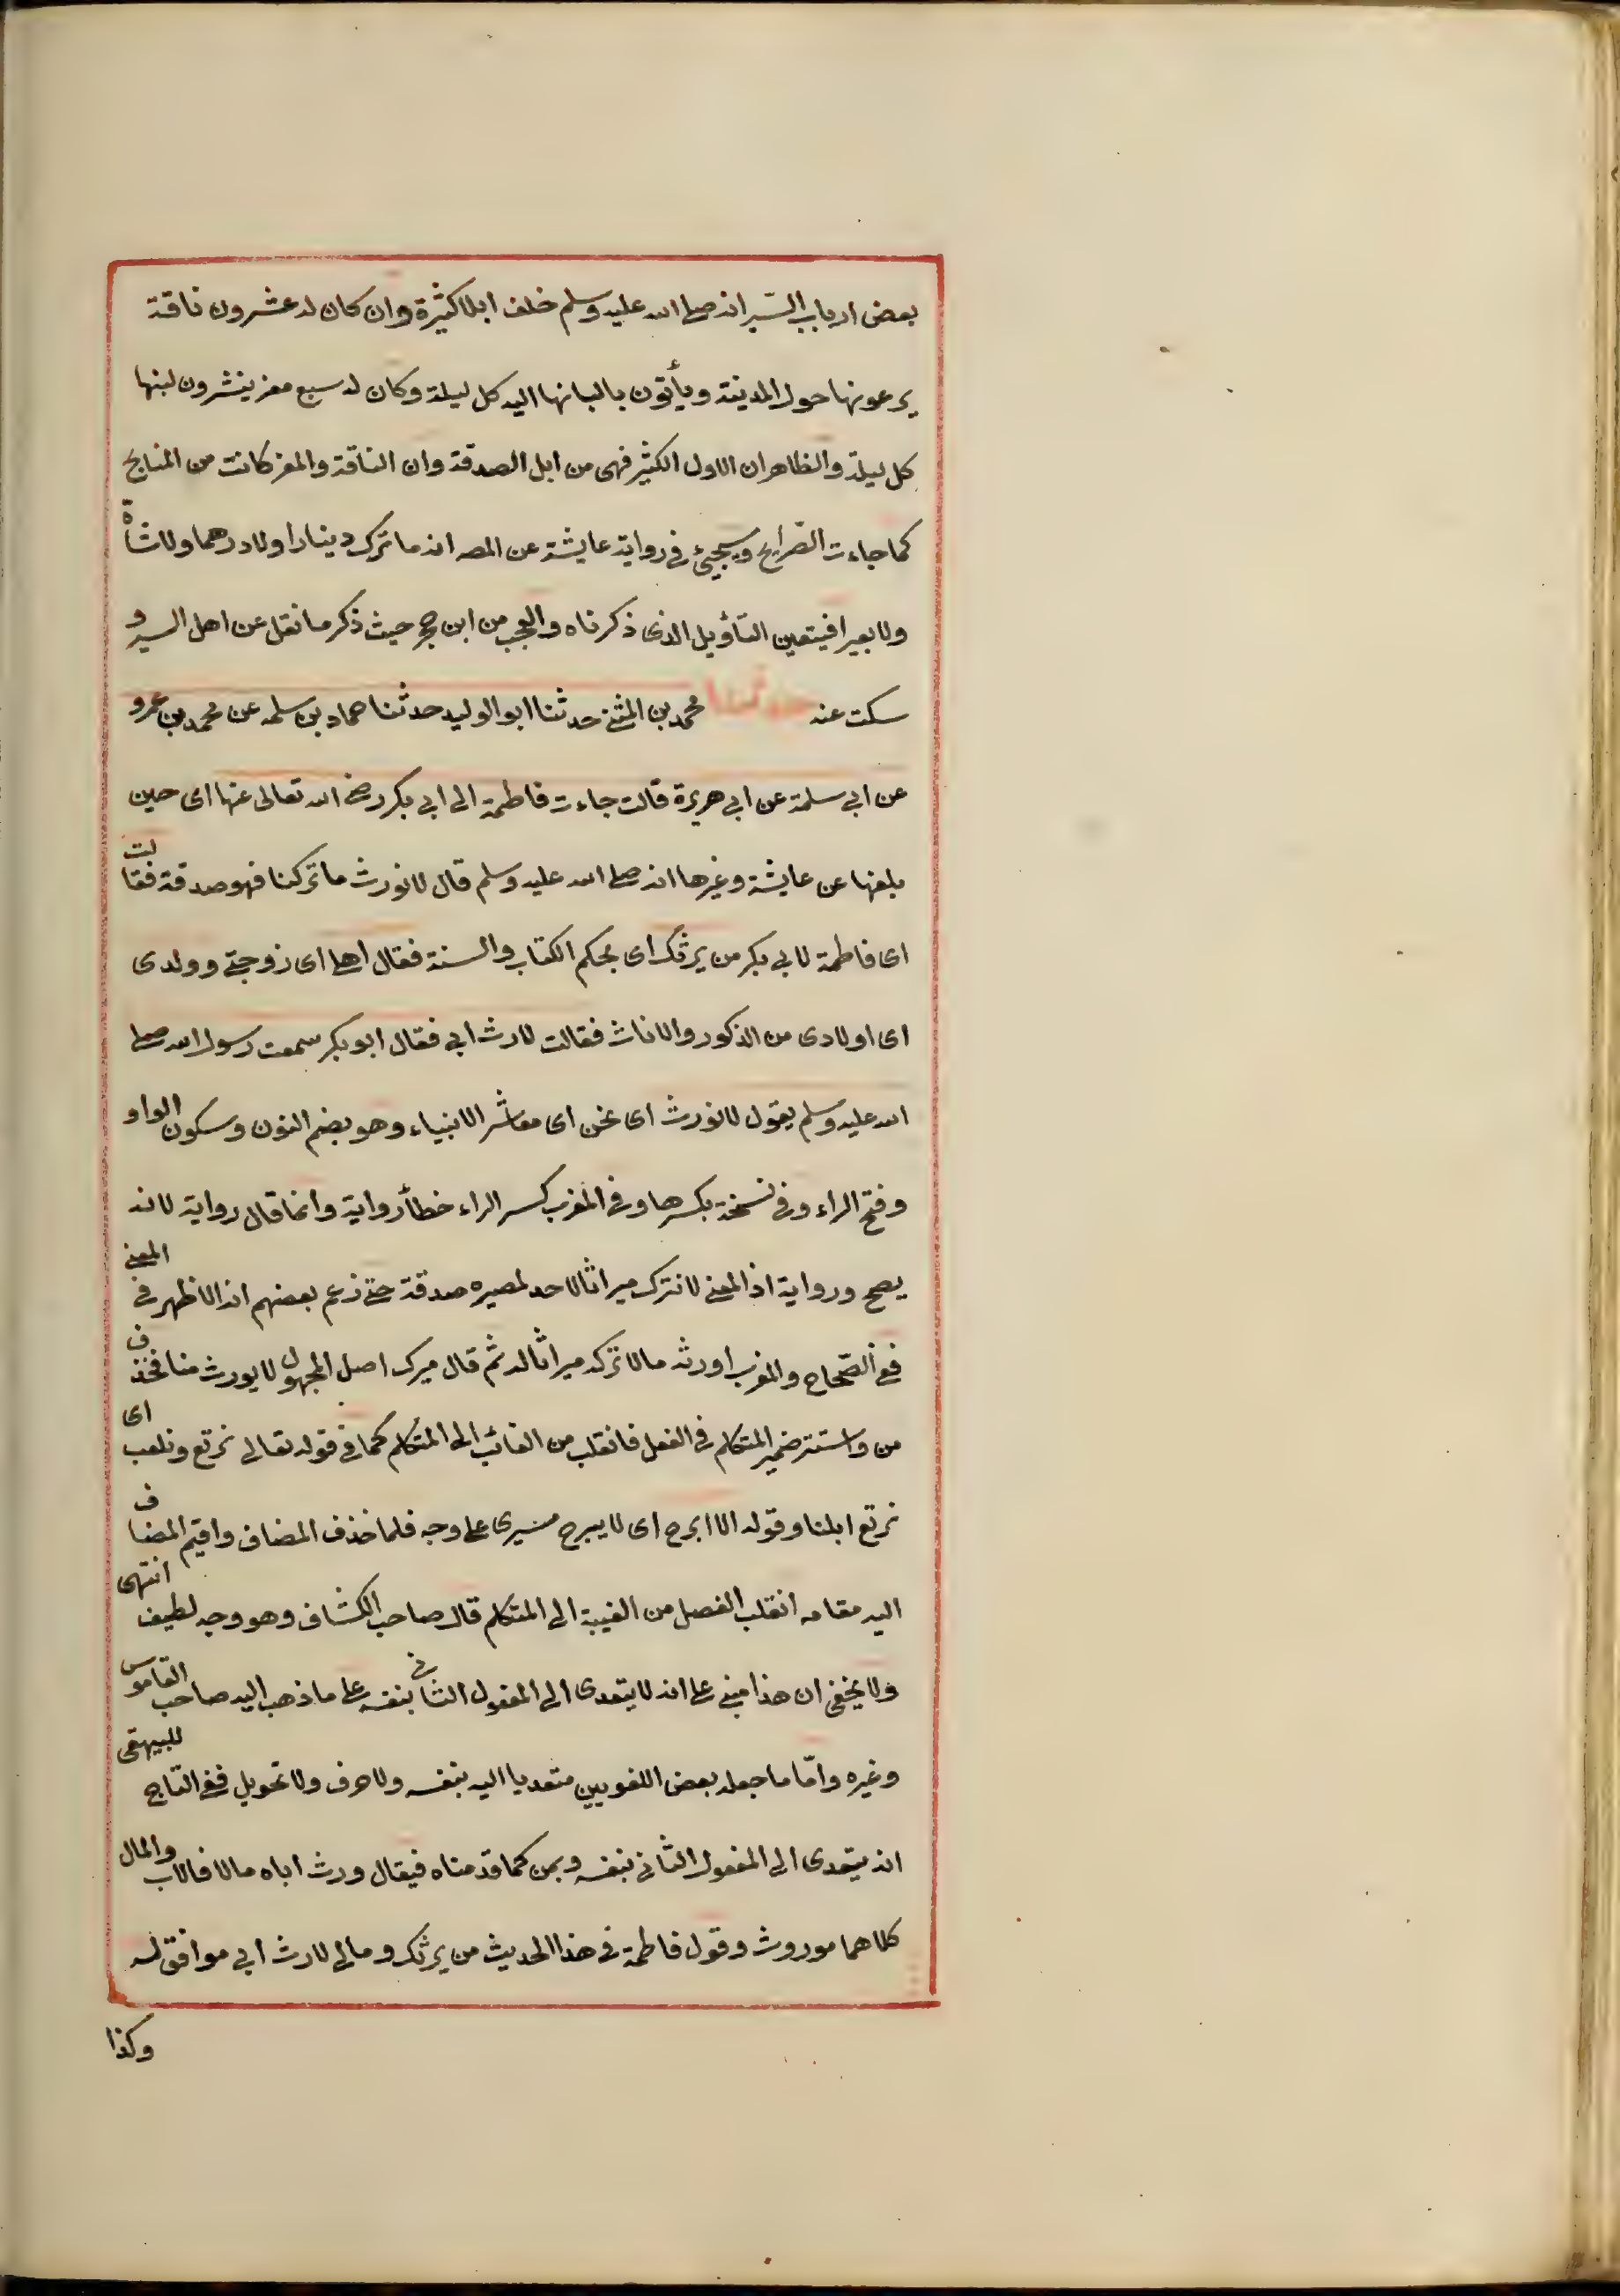 بعض ارباب السّير انه صلى الله عليه وسلم خلف ابلا كثيرة وان كان له عشرون ناقة
يرعونها حول المدينة ويأتون بالبانها اليه كل ليلة وكان له سبع معز ينشرون لبنها
كل ليلة والظاهر ان الاول الكثير فهى من ابل الصدقة وان الناقة والمعز كانت من المنايح
كما جاءت الصّرايح ويسجيئ فى رواية عايشة عن المصـ انه ما ترك دينارا ولا درهما ولا شاةّ
ولا بعيرا فيتعين التأويل الذى ذكرناه والعجب من ابن حجر حيث ذكر ما نقل عن اهل السير و
سكت عنه حدثنا محمد بن المثنى حدثنا ابو الوليد حدثنا حماد بن سلمه عن محمد بن عمرو
عن ابى سلمة عن ابى هريرة قالت جاءت فاطمة الى ابى بكر رضى الله تعالى عنها اى حين
بلغها عن عايشة وغيرها انه صلى الله عليه وسلم قال لا نورث ما تركنا فهو صدقة فقالت
اى فاطمة لابى بكر من يرثك اى بحكم الكتاب والسنة فقال اهلى اى زوجتى وولدى
اى اولادى من الذكور والاناث فقالت لا ارث ابى فقال ابو بكر سمعت رسول الله صلى
الله عليه وسلم يقول لا نورث اى نحن اى معاشر الانبياء وهو بضم النون وسكون الواو
وفتح الراء وفى نسخة بكسرها وفى المغرب كسر الراء خطأ رواية وانما قال رواية لانه
يصح ورواية اذ المعنى لا نترك ميراثا لاحد لمصيره صدقة حتى زعم بعضهم انه الاظهر فى المعنى
ففى الصّحاح والمغرب اورثه مالا تركه ميراثا له ثم قال ميرك اصل المجهول لا يورث منا فحذف
من واستتر ضمير المتكلم فى الفعل فانقلب من الغائب الى المتكلم كما فى قوله تعالى نرتع ونلعب اى
نرتع ابلنا وقوله الا ابرح اى لا يبرح مسيرى على وجه فلما خذف المضاف واقيم المضاف
اليه مقامه انقلب الفصل من الغيبة الى المتكلم قال صاحب الكشاف وهو وجه لطيف انتهى
ولا يخفى ان هذا مبنى على انه لا يتعدى الى المفعول الثانى بنفسه على ما ذهب اليه صاحب القاموس
وغيره وامّا ما جعله بعض اللغويين متعديا اليه بنفسه ولا حرف ولا تحويل ففى التاج للبيهقى
انه يتعدى الى المفعول الثانى بنفسه وبمن كما قدمناه فيقال ورث اباه مالا فالاب والمال
كلاهما موروث وقول فاطمة فى هذا الحديث من يرثك ومالى لا ارث ابى موافق له
وكذا